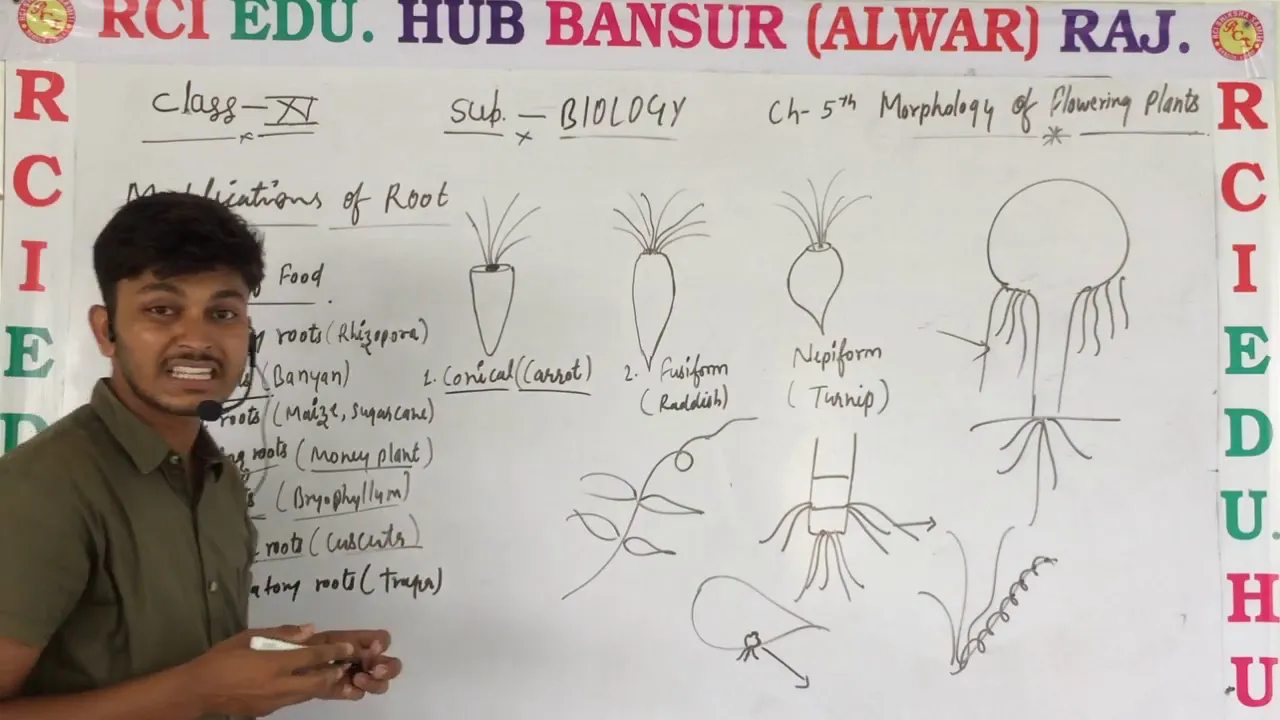 RCI EDU. HUB BANSUR (ALWAR) RAJ.
R
C
I
E
D
R
C
I
E
D
U.
H
U
Class - XI
Sub. - BIOLOGY
Ch- 5th Morphology of Flowering Plants
Modifications of Root
Food
roots (Rhizopora)
(Banyan)
roots (Maize, Sugarcane)
roots (Money plant)
(Bryophyllum)
roots (Cuscuta)
roots (Trapa)
1. Conical (Carrot)
2. Fusiform
(Raddish)
Nepiform
(Turnip)